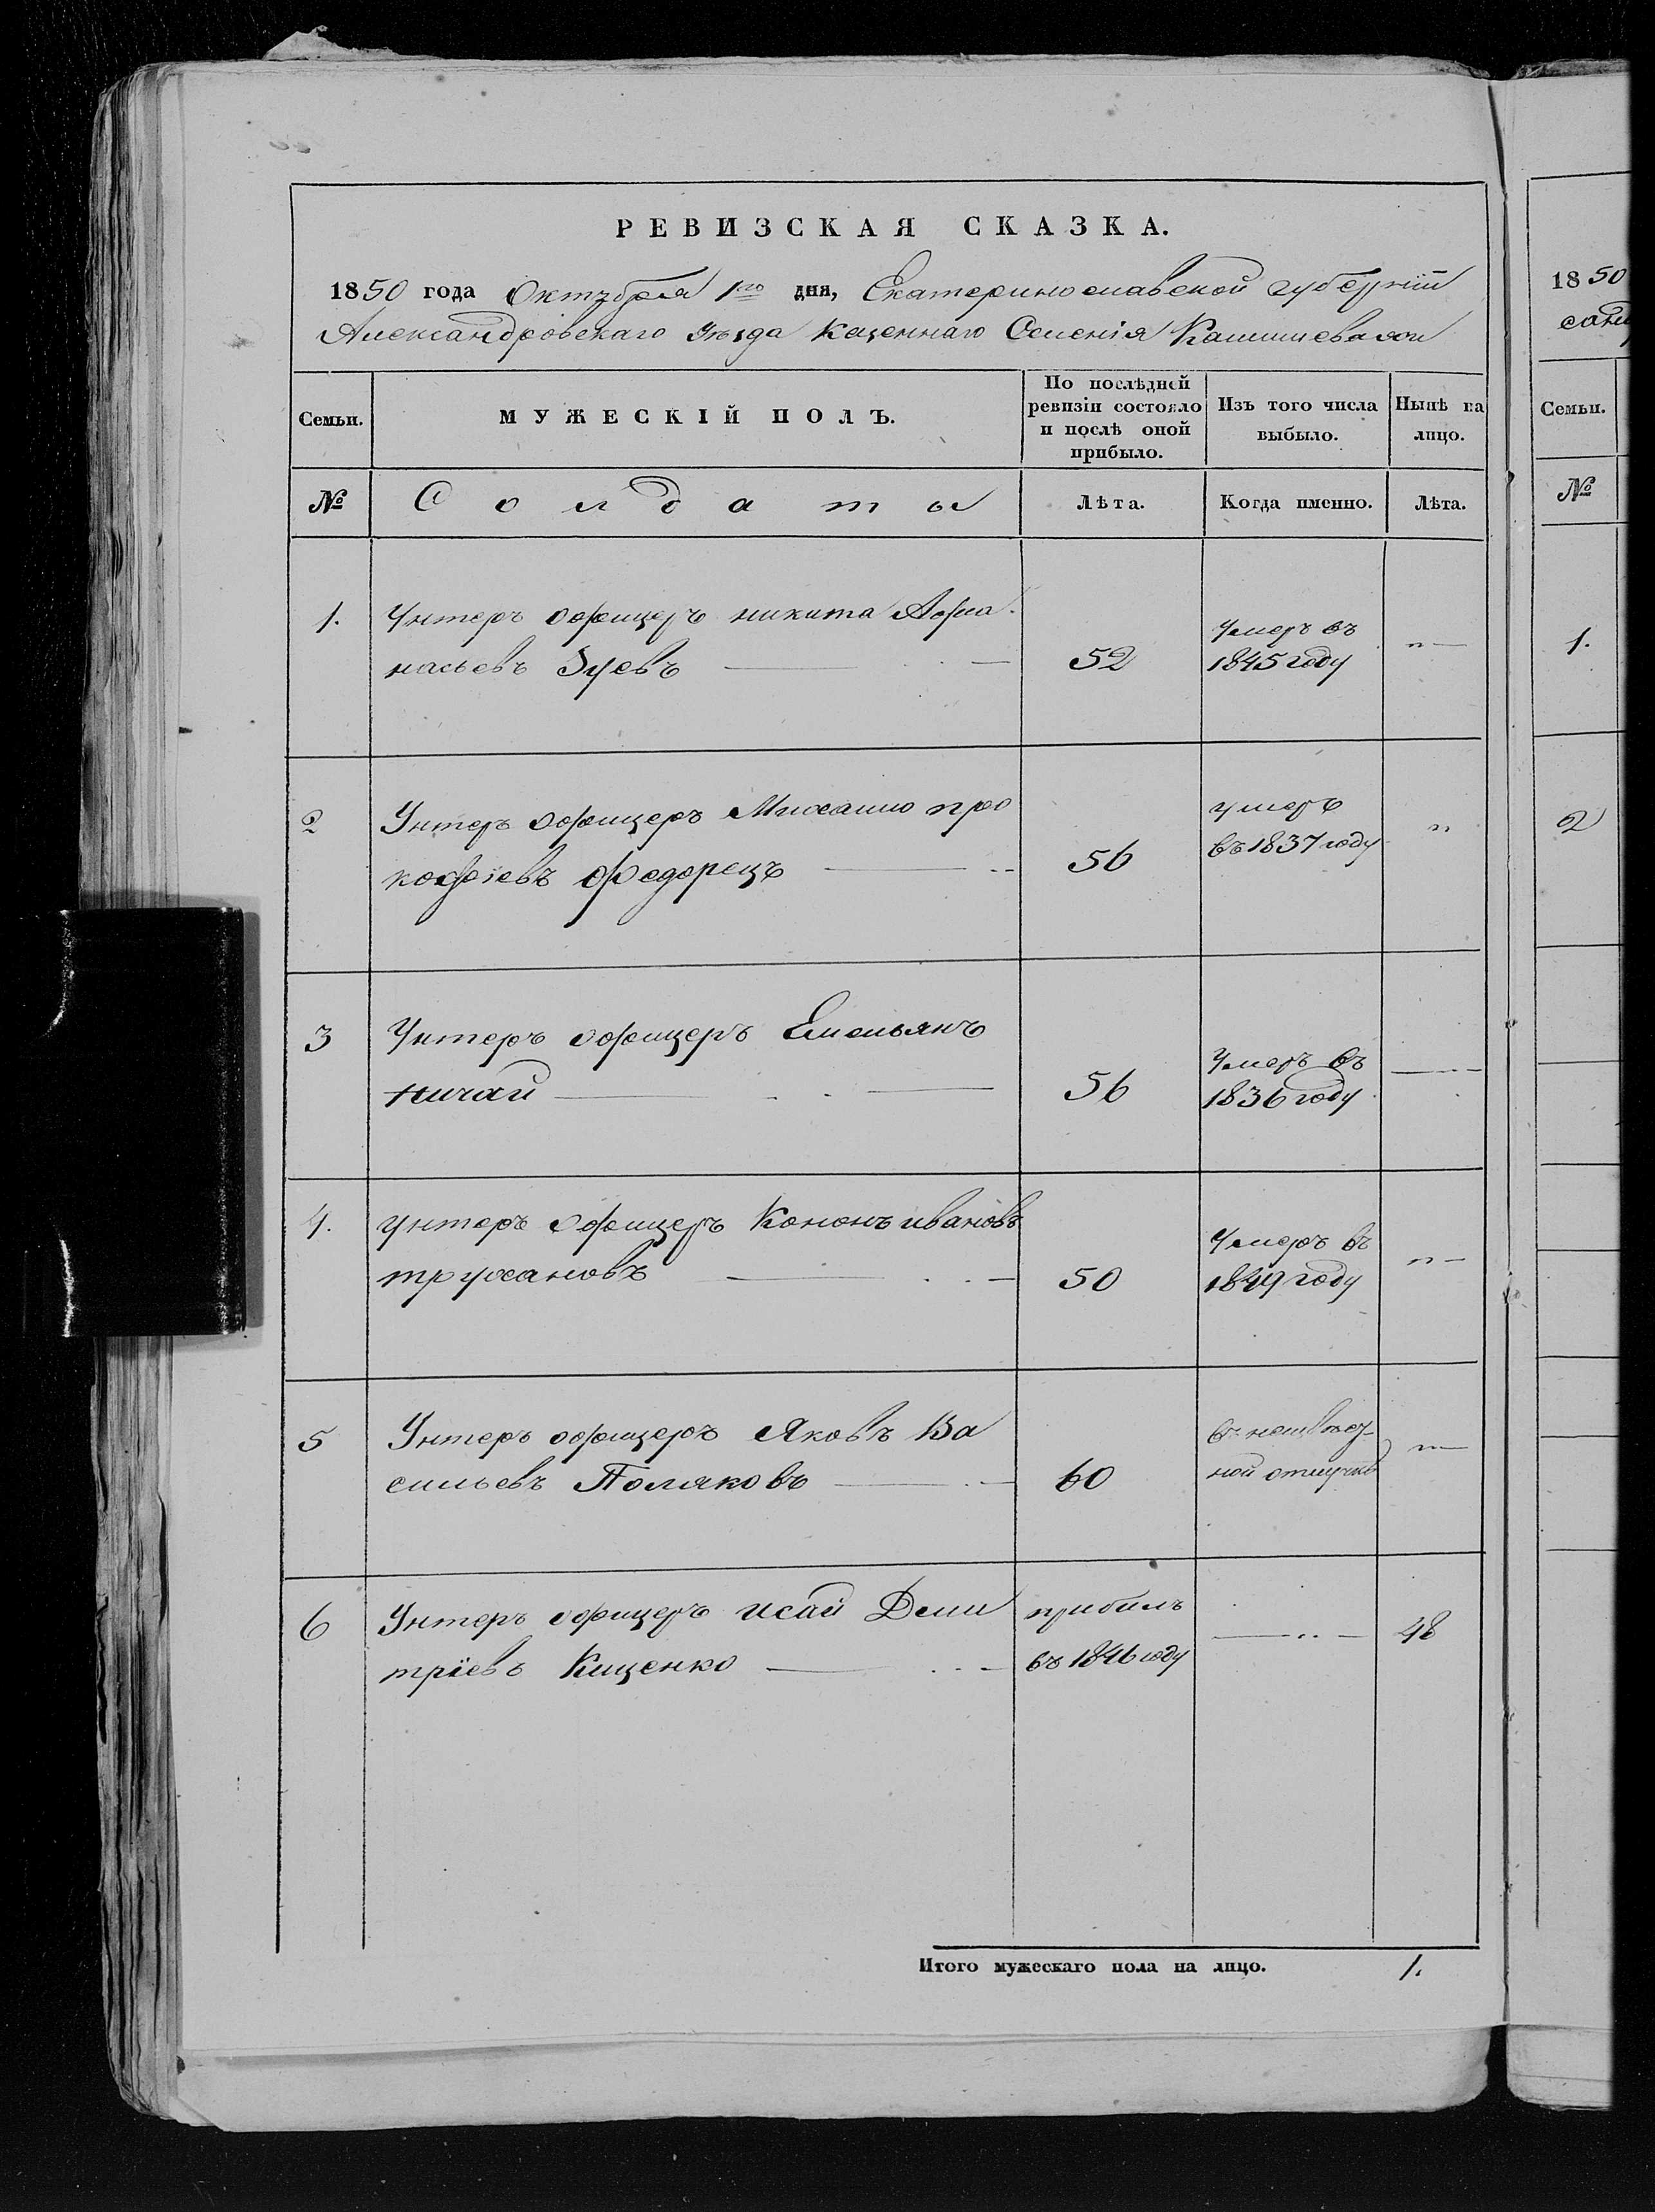 РЕВИЗСКАЯ СКАЗКА.
1850 года Октября 1го дня, Екатеринославской губернїи
Александровскаго уѣзда Казеннаго Селенія Камышевахи
Семьи.
МУЖЕСКІЙ ПОЛЪ.
По послѣдней ревизіи состояло и послѣ оной прибыло.
Изъ того числа выбыло.
Нынѣ на лицо.
№
Солдаты
Лѣта.
Когда именно.
Лѣта.
1. Унтеръ офицеръ никита Афа-
насьевъ Зуевъ
52
Умеръ въ
1845 году
2 Унтеръ офицеръ Михаило про
кофіевъ Федорецъ
56
умеръ
въ 1837 году
3 Унтеръ офицеръ Емельянъ
Ничай
56
Умеръ въ
1836 году
4. унтеръ офицеръ Кононъ ивановъ
трухановъ
50
Умеръ въ
1849 году
5 Унтеръ офицеръ Яковъ Ва
сильевъ Поляковъ
60
ной отлучкѣ
6 Унтеръ офицеръ исай Дми
тріевъ Кищенко
прибылъ
въ 1846 году
48
Итого мужескаго пола на лицо. 1.
1850
Семьи.
№
1.
2